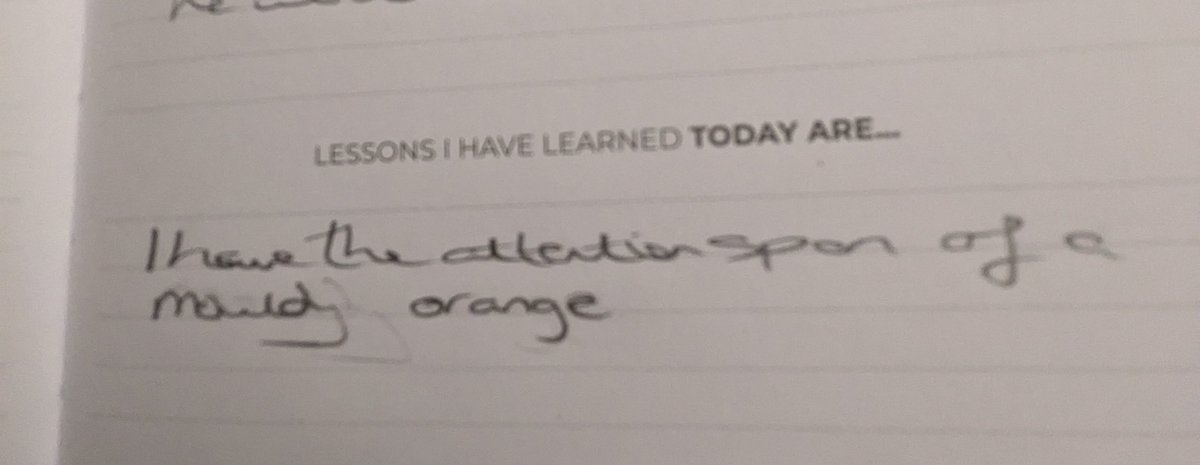 LESSONS I HAVE LEARNED TODAY ARE...
I have the attention span of a
mouldy orange